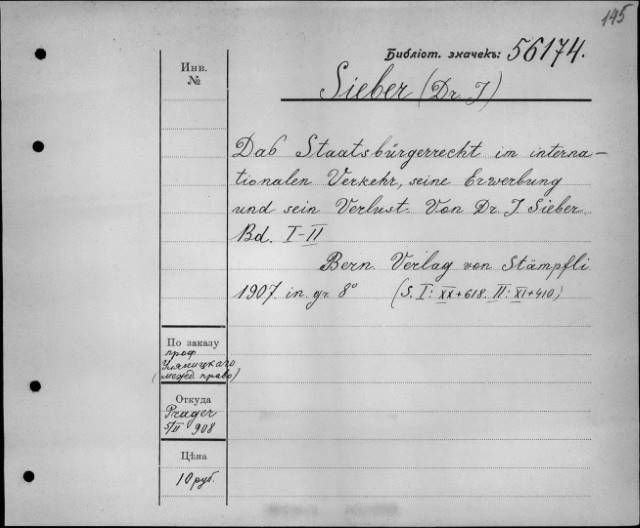 145
Библіот. значекъ: 56174.
Инв.
№
Sieber (Dr. J)
Daß Staatsbürgerrecht im interna-
tionalen Verkehr, seine Erwerbung
und sein Verlust. Von Dr. J. Sieber.
Bd. I-II
Bern. Verlag von Stämpfli
1907. in gr. 8° (S. I: XX+618. II: XI+410)
По заказу
проф
Уляницкаго
(межд. право)
Откуда
Prager
5/II 908
Цѣна
10 руб.